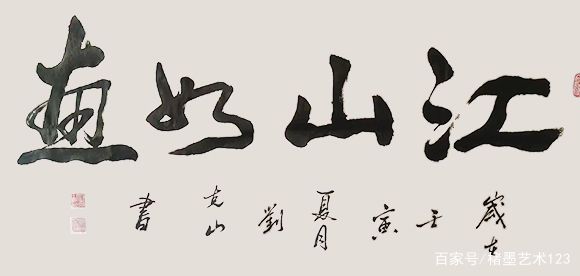 江山如畫
歲在壬寅夏月劉克山書
百家号/楮墨艺术123